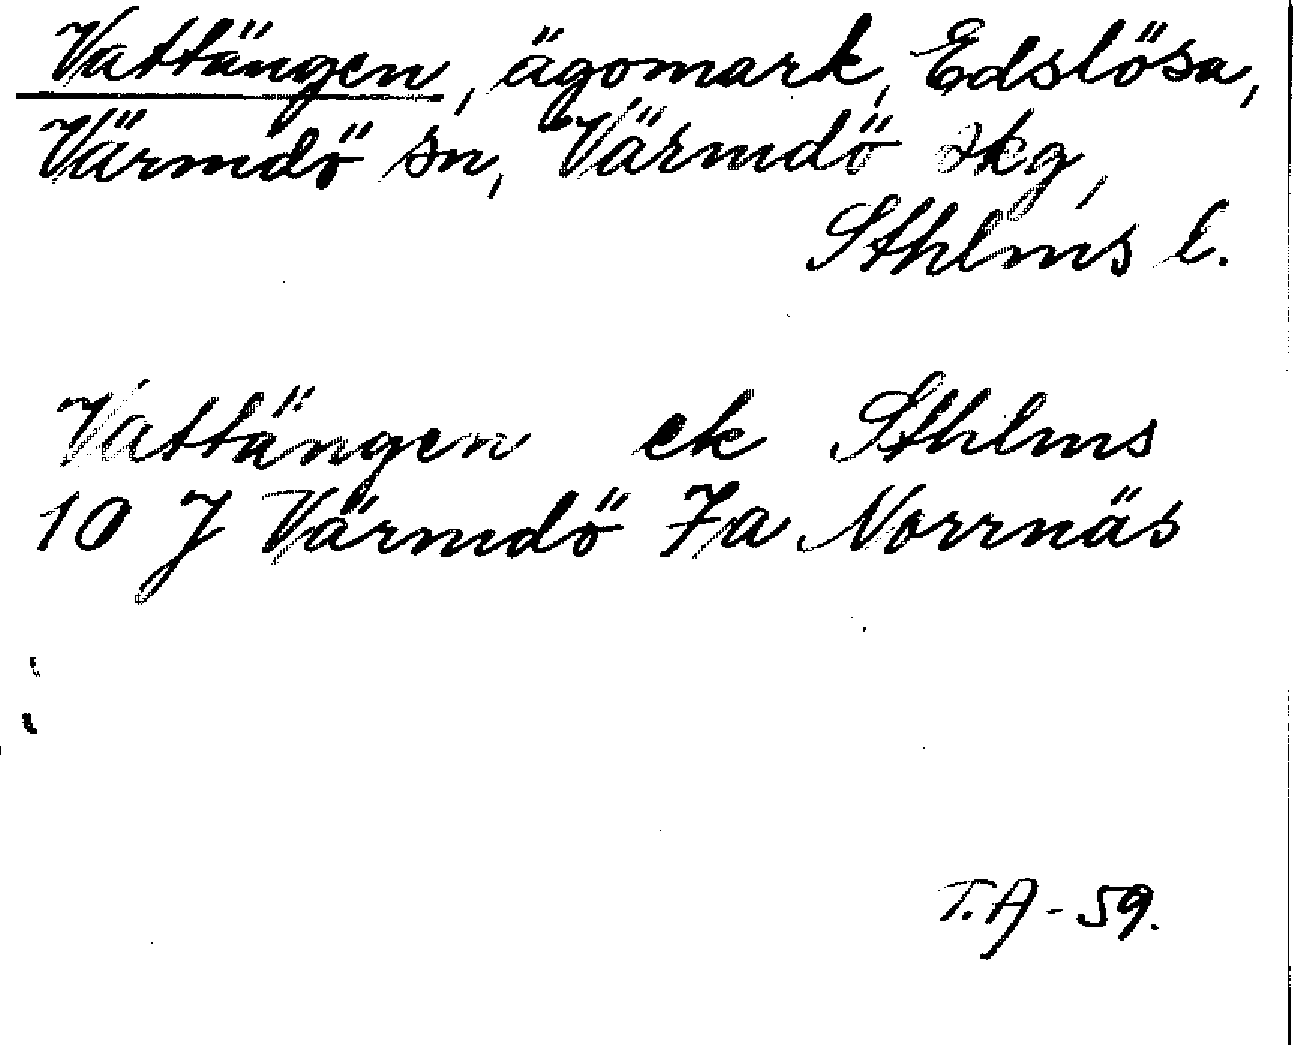 Vattängen, ägomark, Edslösa,
Värmdö sn, Värmdö skg,
Sthlms l.
Vattängen ek Sthlms
10 J Värmdö 7a Norrnäs
T.A - 59.